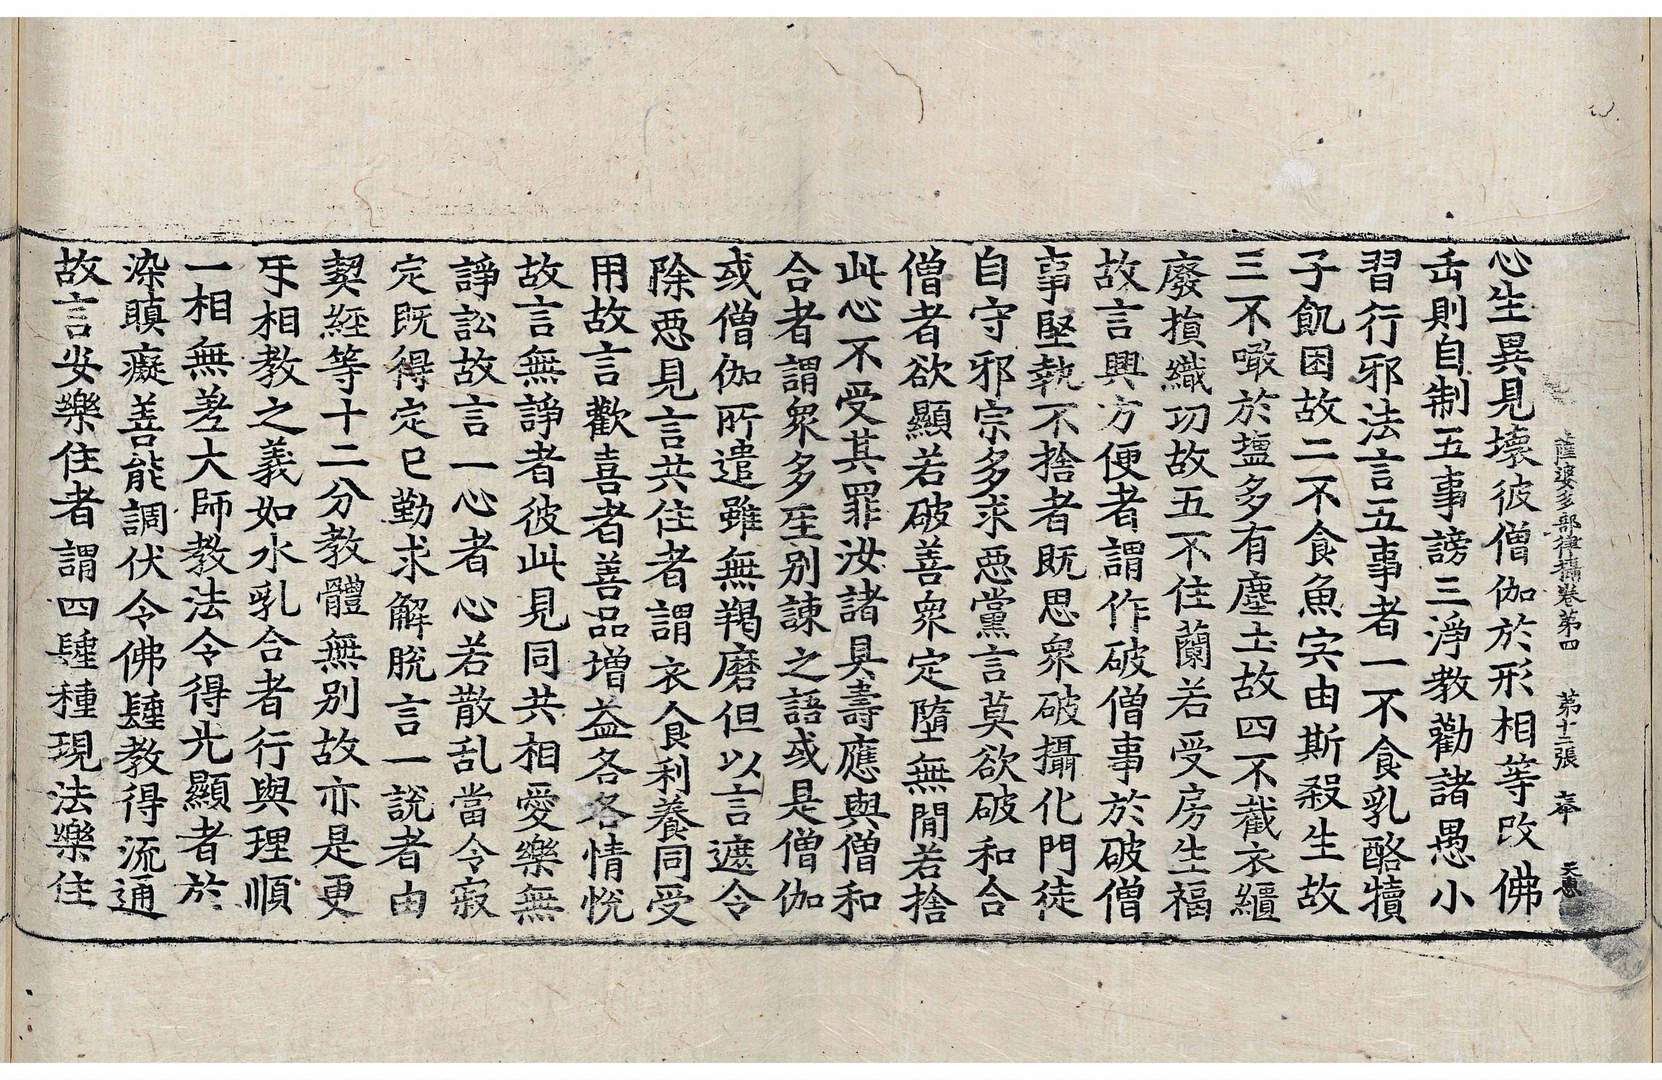 薩婆多部律攝卷第四 第十二張 奉 天惠
心生異見壞彼僧伽於形相等改佛
缶則自制五事謗三淨教勸諸愚小
習行邪法言五事者一不食乳酪犢
子飢困故二不食魚宍由斯殺生故
三不噉於塩多有塵土故四不截衣繼
廢損織功故五不住蘭若受房生福
故言興方便者謂作破僧事於破僧
事堅執不捨者既思衆破攝化門徒
自守邪宗多求惡黨言莫欲破和合
僧者欲顯若破善衆定墮無閒若捨
此心不受其罪汝諸具壽應與僧和
合者謂衆多㘴別諫之語或是僧伽
或僧伽所遣雖無羯磨但以言遮令
除惡見言共住者謂衣食利養同受
用故言歡喜者善品增益各各情悅
故言無諍者彼此見同共相愛樂無
諍訟故言一心者心若散乱當令寂
定既得定已勤求解脫言一說者由
契經等十二分教體無別故亦是更
㸦相教之義如水乳合者行與理順
一相無差大師教法令得光顯者於
染瞋癡善能調伏令佛𨤲教得流通
故言安樂住者謂四𨤲種現法樂住